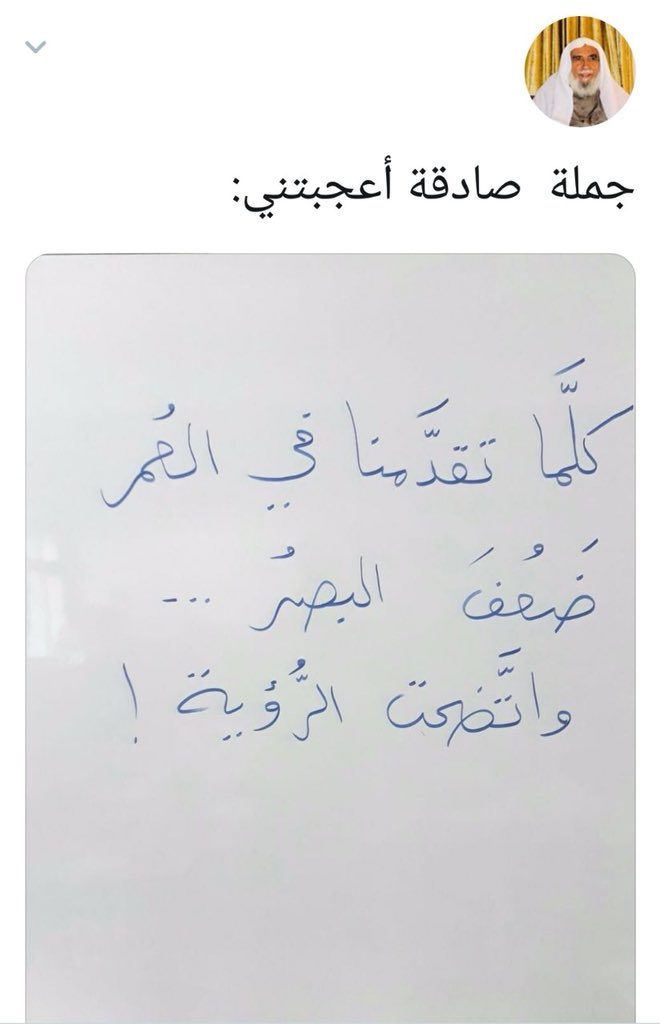 جملة صادقة أعجبتني:
كلَّما تقدَّمنا في العُمر
ضَعُفَ البصرُ ...
واتَّضحت الرُّؤية !